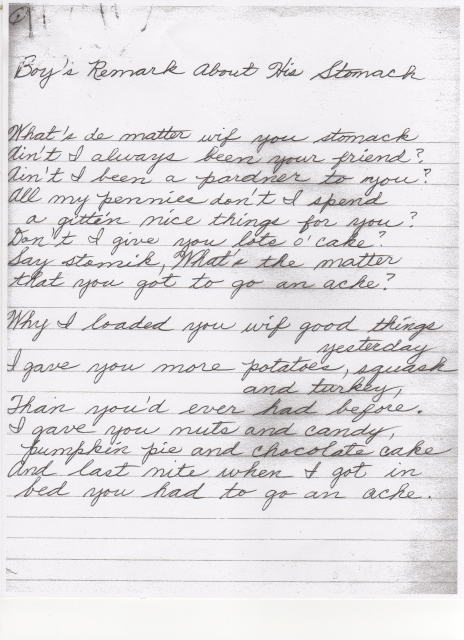 Boy's Remark About His Stomack
What's de matter wif you stomack
Ain't I always been your friend?
Ain't I been a pardner to you?
All my pennies don't I spend
a gitten nice things for you?
Don't I give you lots o' cake?
Say stomik, What's the matter
that you got to go an ache?
Why I loaded you wif good things
yesterday
I gave you more potatoes, squash
and turkey,
Than you'd ever had before.
I gave you nuts and candy,
pumpkin pie and chocolate cake
And last nite when I got in
bed you had to go an ache.